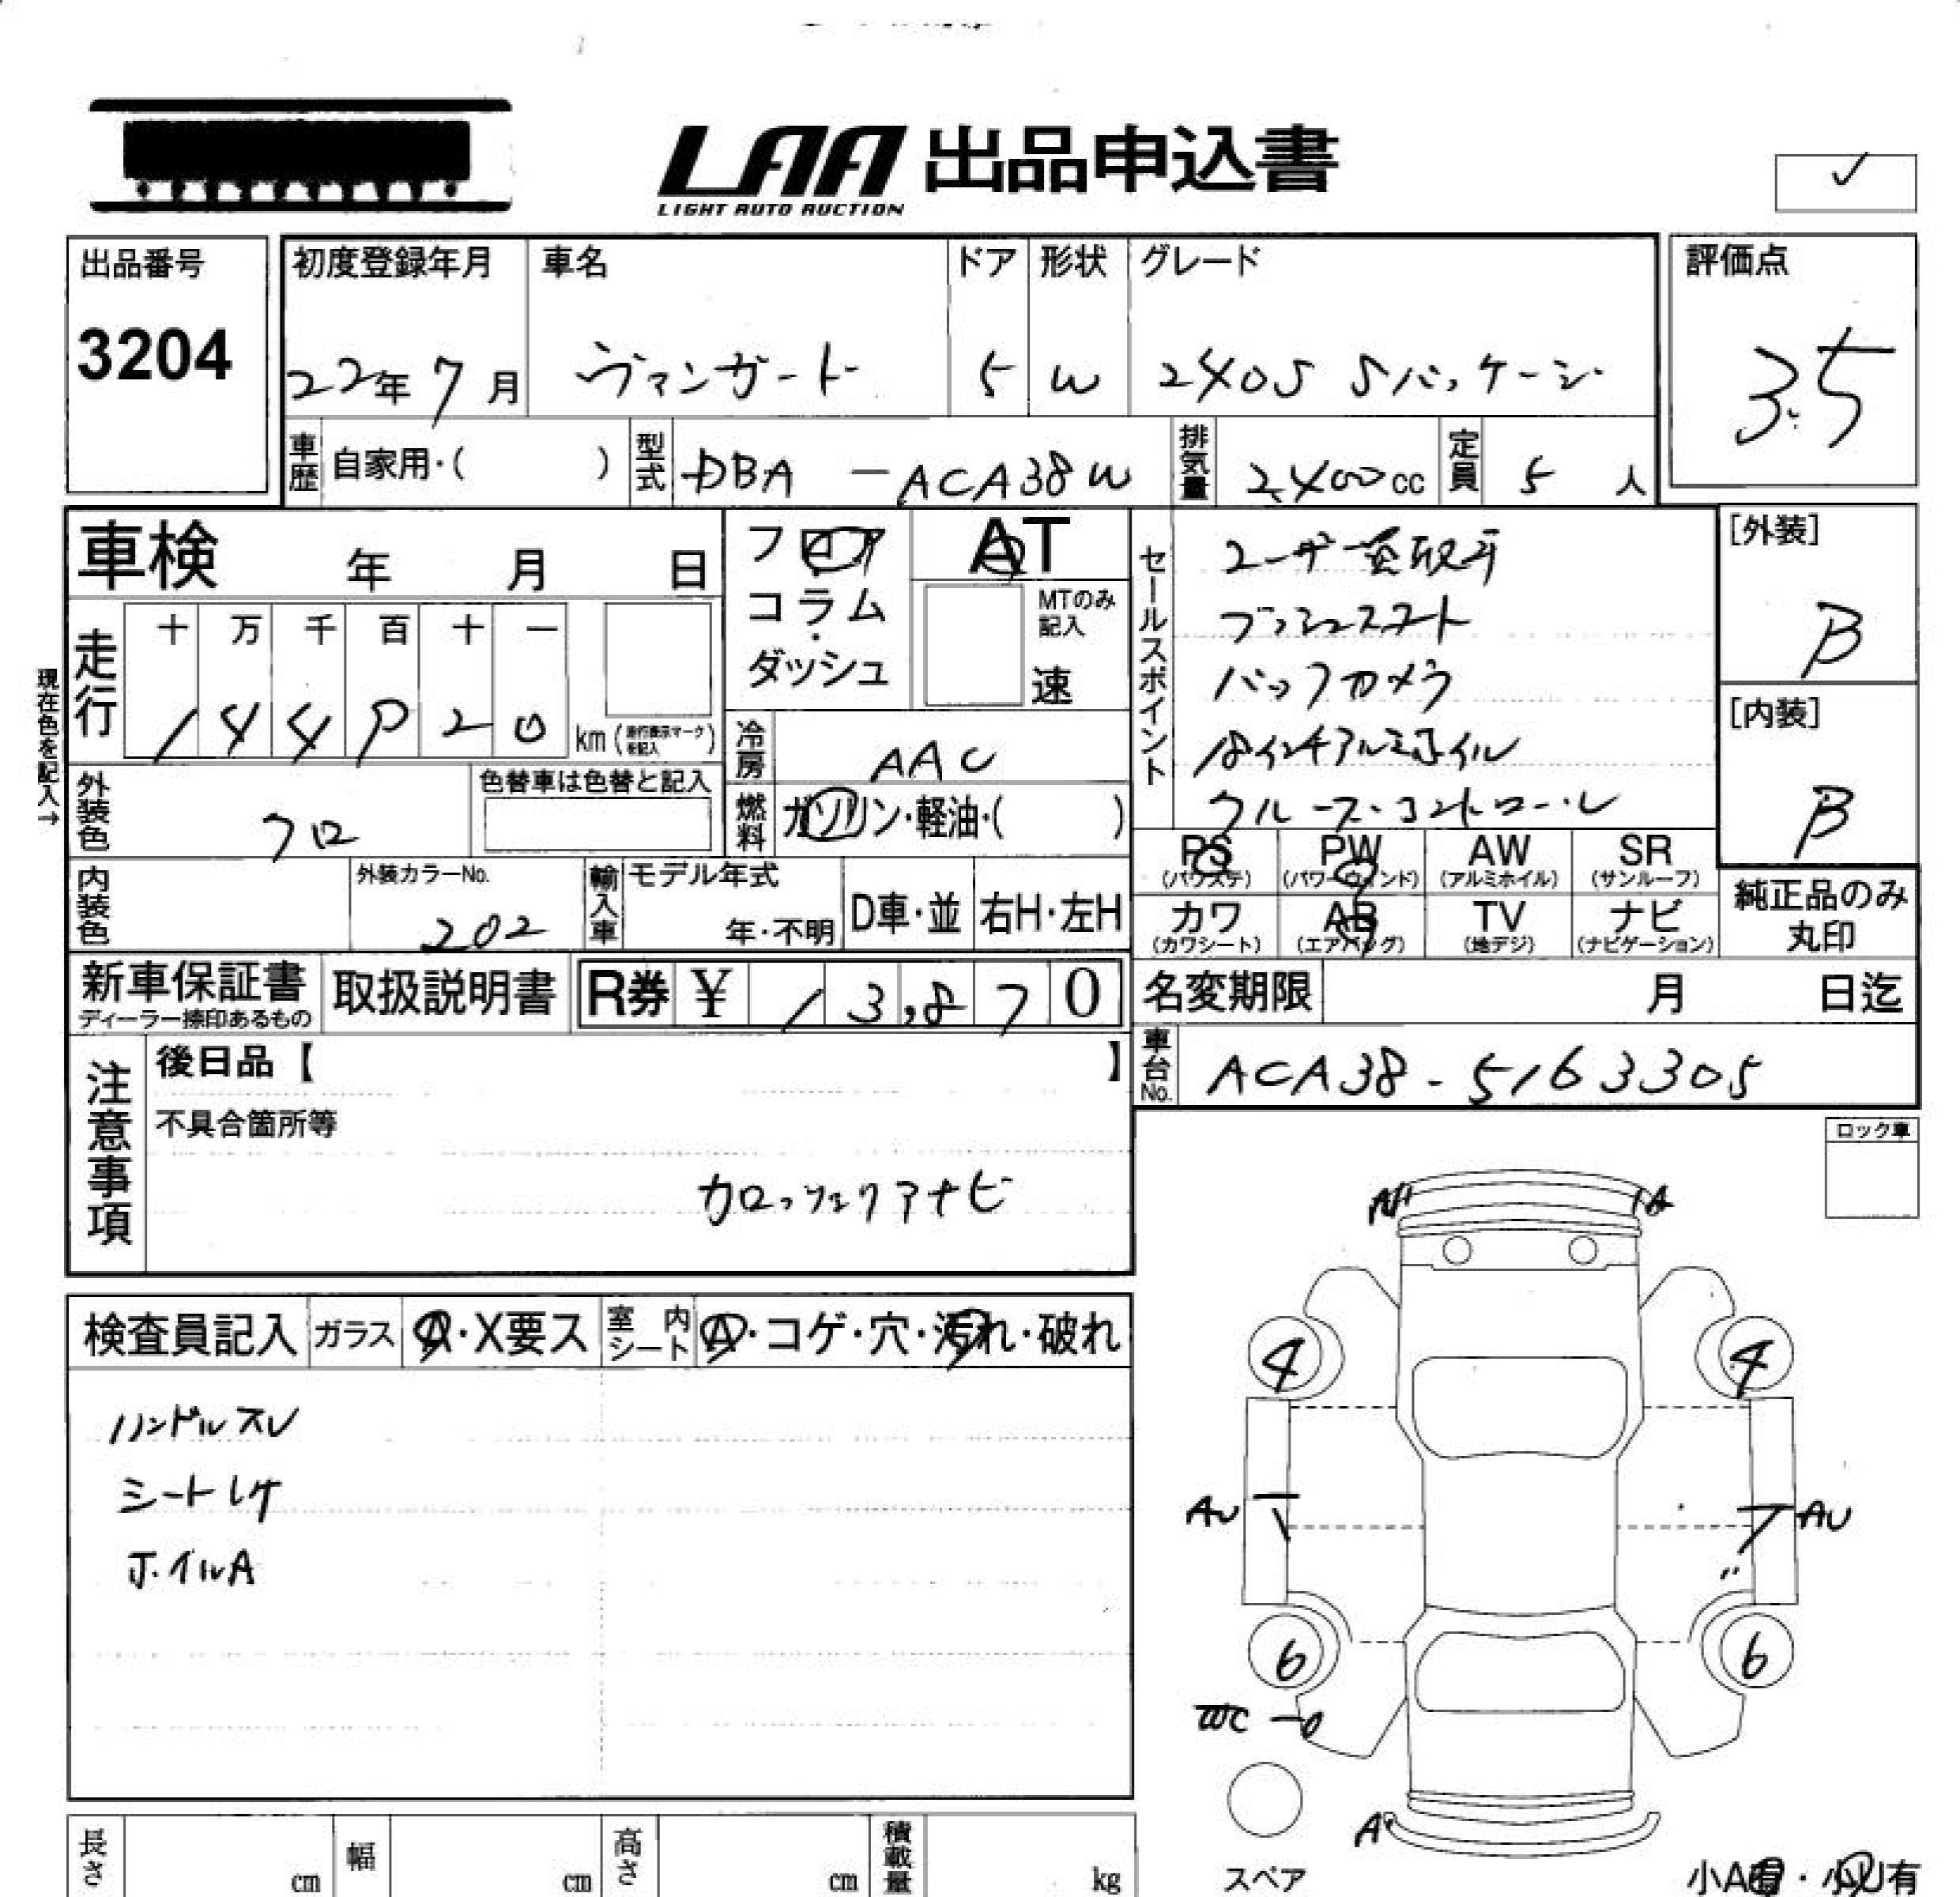 LAA 出品申込書
LIGHT AUTO AUCTION
✓
出品番号
3204
初度登録年月 車名 ドア 形状 グレード
22年 7月 ヴァンガード 5 W 240S Sパッケージ
評価点
3.5
車歴 自家用・( ) 型式 DBA - ACA38W 排気量 2,400cc 定員 5 人
車検 年 月 日
フロア・コラム・ダッシュ
AT
MTのみ記入
速
セールスポイント
ユーザー買取車
プッシュスタート
バックカメラ
18インチアルミホイル
クルーズ・コントロール
[外装]
B
[内装]
B
現在色を記入→
走行 十 万 千 百 十 一
1 4 4 9 2 0 km (走行表示マークを記入)
冷房 AAC
燃料 ガソリン・軽油・( )
外装色 クロ
色替車は色替と記入
内装色
外装カラーNo.
202
輸入車 モデル年式
年・不明
D車・並 右H・左H
PS (パワステ) PW (パワーウィンド) AW (アルミホイル) SR (サンルーフ)
カワ (カワシート) AB (エアバッグ) TV (地デジ) ナビ (ナビゲーション)
純正品のみ丸印
新車保証書
ディーラー捺印あるもの
取扱説明書
R券 ¥ 13,870
名変期限 月 日迄
車台No. ACA38-5163305
注意事項
後日品【 】
不具合箇所等
カロッツェリアナビ
ロック車
検査員記入 ガラス A・X要ス 室内シート A・コゲ・穴・汚れ・破れ
ハンドルスレ
シートレケ
ホイルA
A
A
4
4
AU
AU
6
6
WC
A
スペア
小A有・小U有
長さ cm 幅 cm 高さ cm 積載量 kg